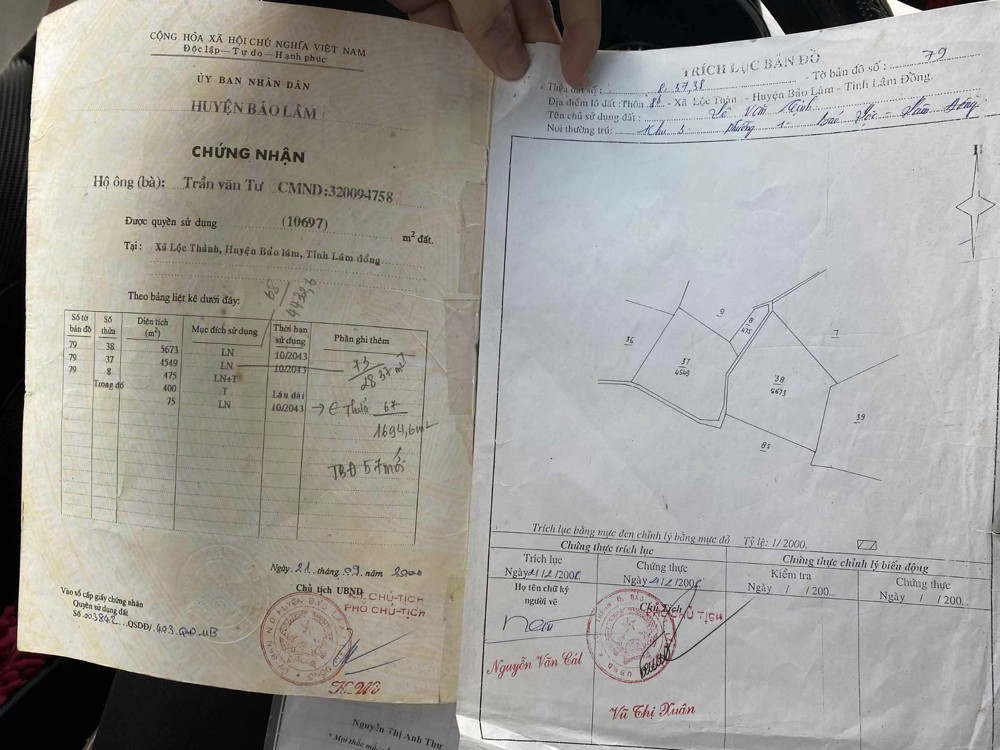 CỘNG HÒA XÃ HỘI CHỦ NGHĨA VIỆT NAM
Độc lập - Tự do - Hạnh phúc
ỦY BAN NHÂN DÂN
HUYỆN BẢO LÂM
CHỨNG NHẬN
Hộ ông (bà): Trần văn Tư CMND:320094758
Được quyền sử dụng (10697) m² đất.
Tại: Xã Lộc Thành, Huyện Bảo lâm, Tỉnh Lâm đồng
Theo bảng liệt kê dưới đây:
68
4439,6
Số tờ bản đồ Số thửa Diện tích (m²) Mục đích sử dụng Thời hạn sử dụng Phần ghi thêm
79 38 5673 LN 10/2043
79 37 4549 LN 10/2043 73
2837 m²
79 8 475 LN+T
Trong đó 400 T Lâu dài
75 LN 10/2043 → Thửa 67
1694,6m²
TBĐ 57 mới
Ngày 21 tháng 09 năm 2000
Chủ tịch UBND
KT. CHỦ-TỊCH
PHÓ CHỦ-TỊCH
Vào sổ cấp giấy chứng nhận
Quyền sử dụng đất
Số 003842 QSDĐ/
TRÍCH LỤC BẢN ĐỒ
Thửa đất số : 8.37,38 - Tờ bản đồ số : 79
Địa điểm lô đất :Thôn 8b - Xã Lộc Thành - Huyện Bảo Lâm - Tỉnh Lâm Đồng.
Tên chủ sử dụng đất : Văn
Nơi thường trú: Khu 3 - Phường 1 - Bảo Lộc - Lâm Đồng
B
9
8
475
7
36
37
4549
38
5673
39
85
Trích lục bằng mực đen chỉnh lý bằng mực đỏ Tỷ lệ: 1/2000.
Chứng thực trích lục Chứng thực chỉnh lý biến động
Trích lục Chứng thực Kiểm tra Chứng thực
Ngày 21/2/2008 Ngày 21/2/2008 Ngày / /200 Ngày / /200
Họ tên chữ ký người vẽ
Chủ Tịch
Nguyễn Văn Cát
Vũ Thị Xuân
Nguyễn Thị Anh Thư